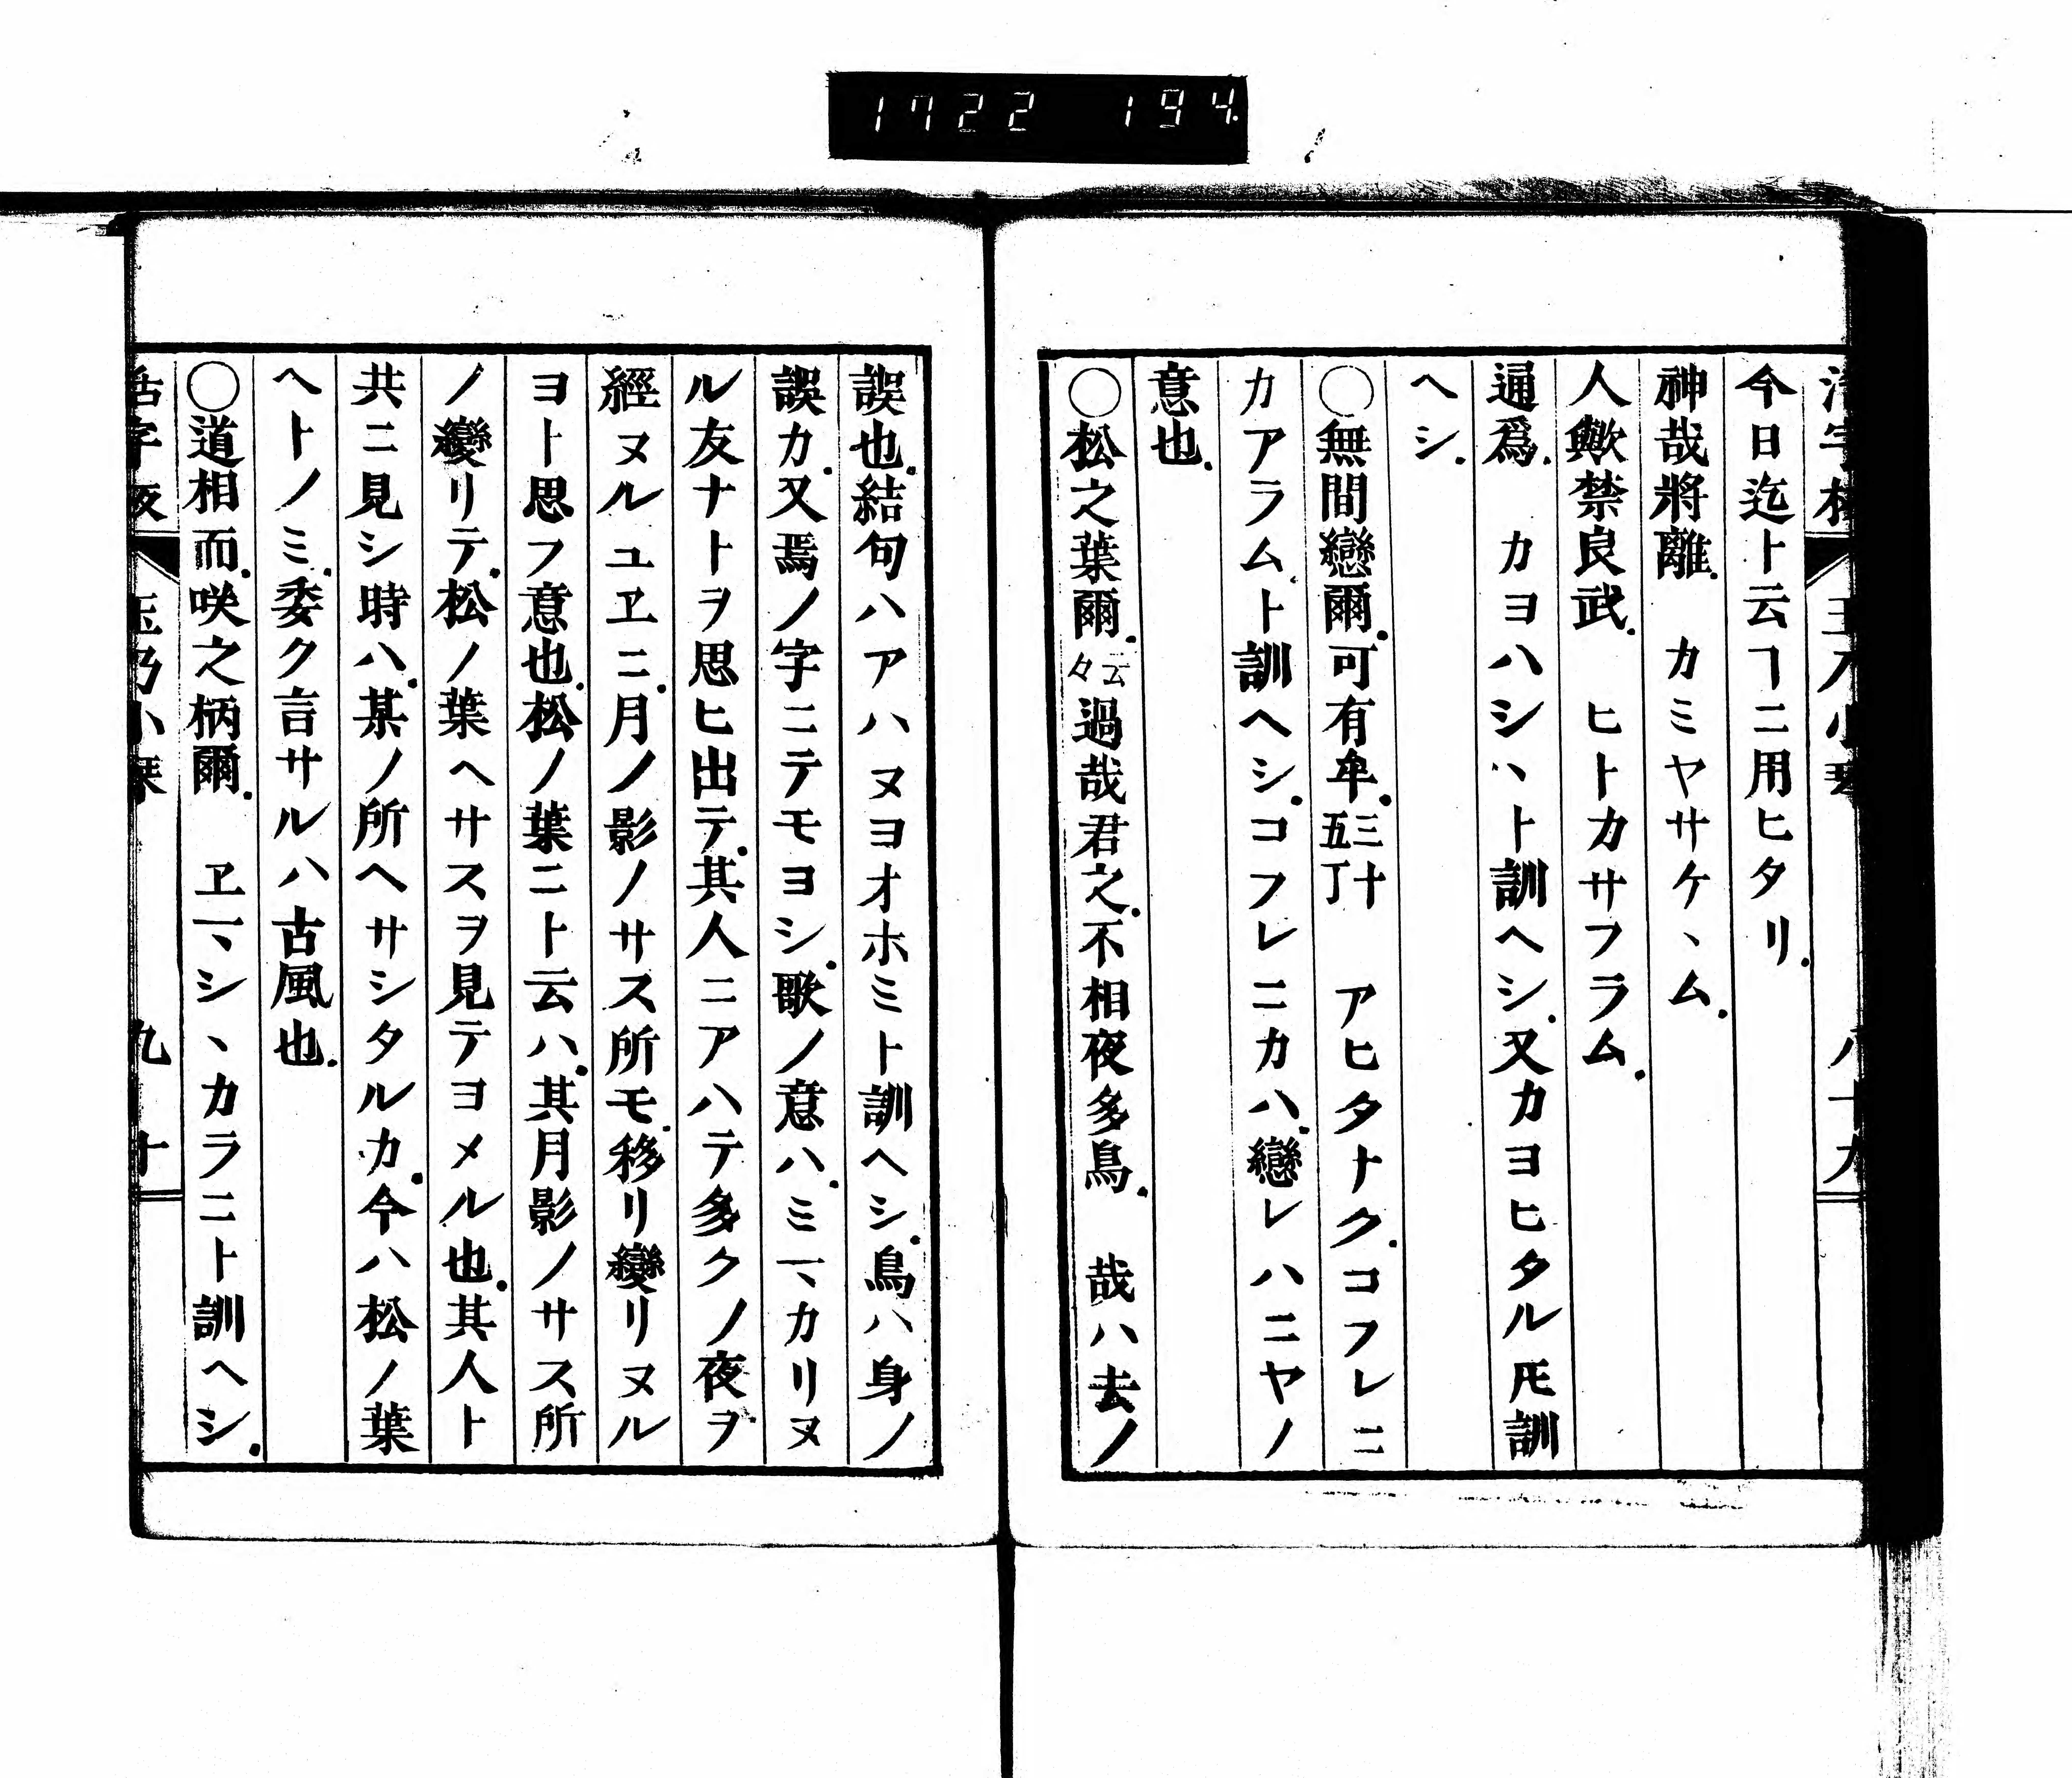 1722 194
今日迄ト云ヿニ用ヒタリ.
神哉將離. カミヤサケヽム.
人歟禁良武. ヒトカサフラム.
通爲. カヨハシヽト訓ヘシ.又カヨヒタル𪜈訓
ヘシ.
○無間戀爾.可有牟.三十五丁 アヒタナク.コフレニ
カアラム.ト訓ヘシ.コフレニカハ.戀レハニヤノ
意也.
○松之葉爾.云々過哉君之.不相夜多鳥. 哉ハ去ノ
誤也.結句ハアハヌヨオホミト訓ヘシ.鳥ハ身ノ
誤カ.又焉ノ字ニテモヨシ.歌ノ意ハ.ミマカリヌ
ル友ナトヲ思ヒ出テ.其人ニアハテ多クノ夜ヲ
經ヌルユヱニ.月ノ影ノサス所モ.移リ變リヌル
ヨト思フ意也.松ノ葉ニト云ハ.其月影ノサス所
ノ變リテ.松ノ葉ヘサスヲ見テヨメル也.其人ト
共ニ見シ時ハ.某ノ所ヘサシタルカ.今ハ松ノ葉
ヘトノミ.委ク言サルハ古風也.
○道相而.咲之柄爾. ヱマシヽカラニト訓ヘシ.
九十